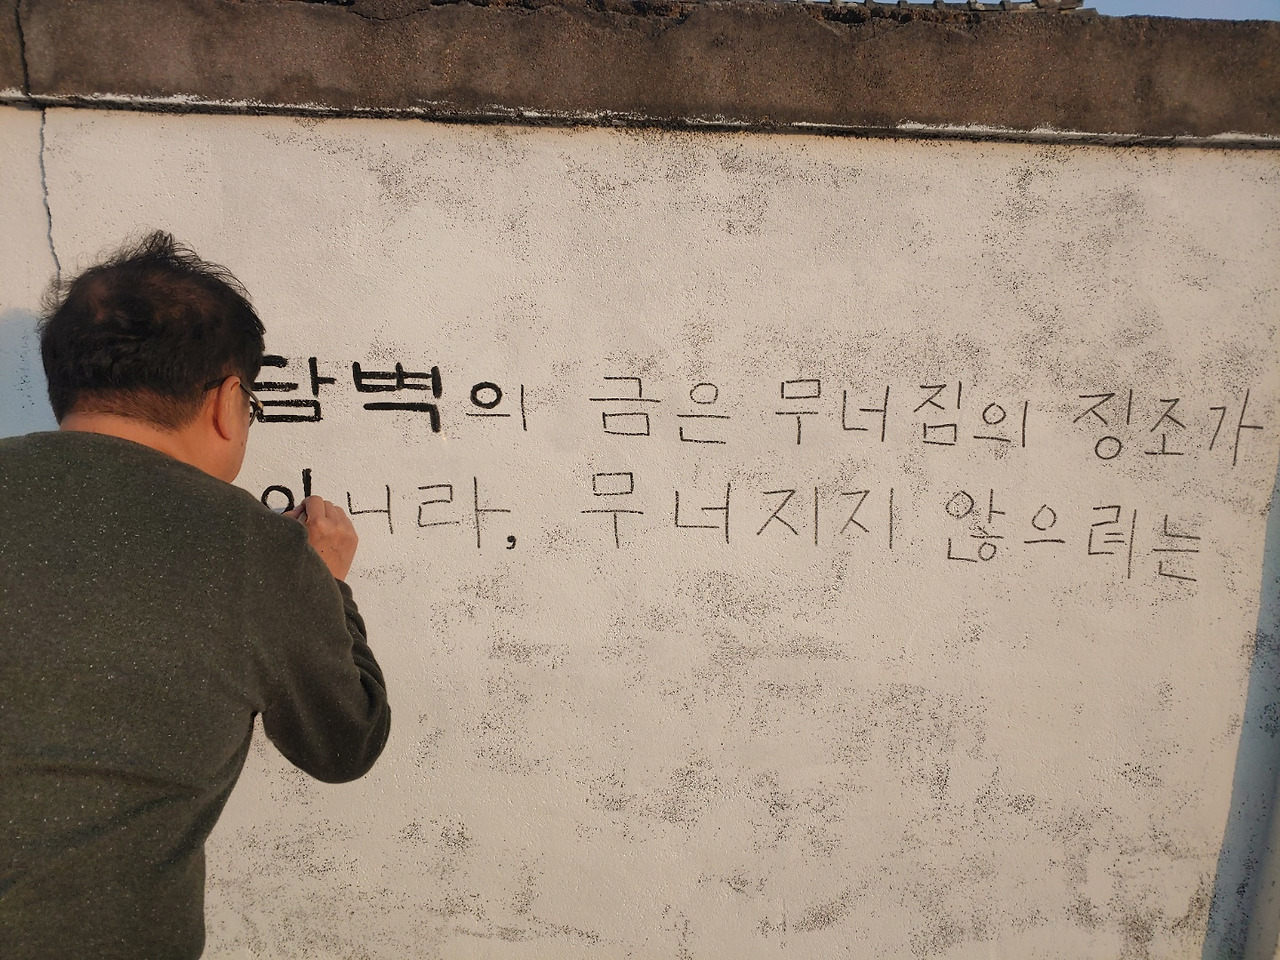 담벽의 금은 무너짐의 징조가
아니라, 무너지지 않으려는